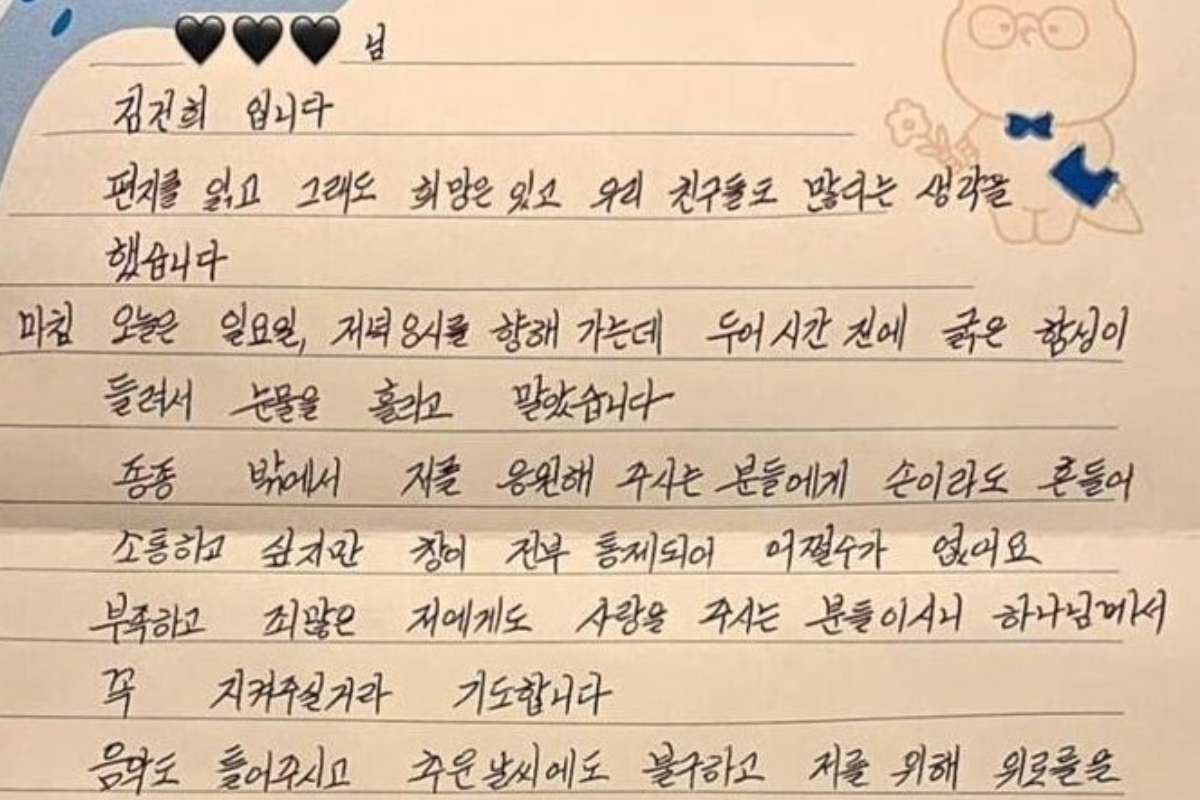 🖤🖤🖤 님
김건희 입니다
편지를 읽고 그래도 희망은 있고 우리 친구들도 많다는 생각을
했습니다
마침 오늘은 일요일, 저녁 8시를 향해 가는데 두어 시간 전에 굵은 함성이
들려서 눈물을 흘리고 말았습니다
종종 밖에서 저를 응원해 주시는 분들에게 손이라도 흔들어
소통하고 싶지만 창이 전부 통제되어 어쩔수가 없어요
부족하고 죄많은 저에게도 사랑을 주시는 분들이시니 하나님께서
꼭 지켜주실거라 기도합니다
음악도 틀어주시고 추운날씨에도 불구하고 저를 위해 위로를을